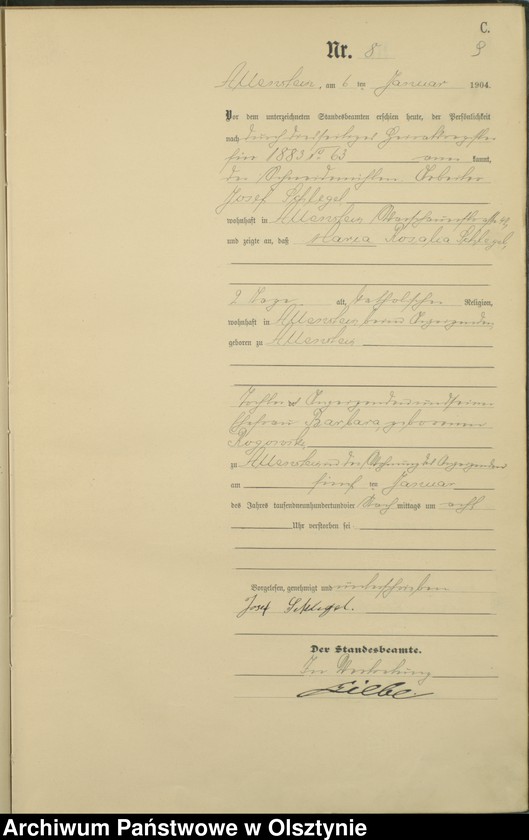 C.
Nr. 8
9
Allenstein, am 6 ten Januar 1904.
Vor dem unterzeichneten Standesbeamten erschien heute, der Persönlichkeit
nach durch
für 1883 No 63 kannt,
der Schneidemühlen Arbeiter
Josef Schlegel
wohnhaft in Allenstein
und zeigte an, daß Maria Rosalia Schlegel,
2 Tage alt, katholischer Religion,
wohnhaft in Allenstein beim Anzeigenden
geboren zu Allenstein
Tochter des Anzeigenden und seiner
Ehefrau Barbara geborenen
zu Allenstein in der Wohnung des Anzeigenden
am fünf ten Januar
des Jahres tausendneunhundertundvier Nach mittags um acht
Uhr verstorben sei
Vorgelesen, genehmigt und unterschrieben
Josef Schlegel.
Der Standesbeamte.
In Vertretung
Archiwum Państwowe w Olsztynie